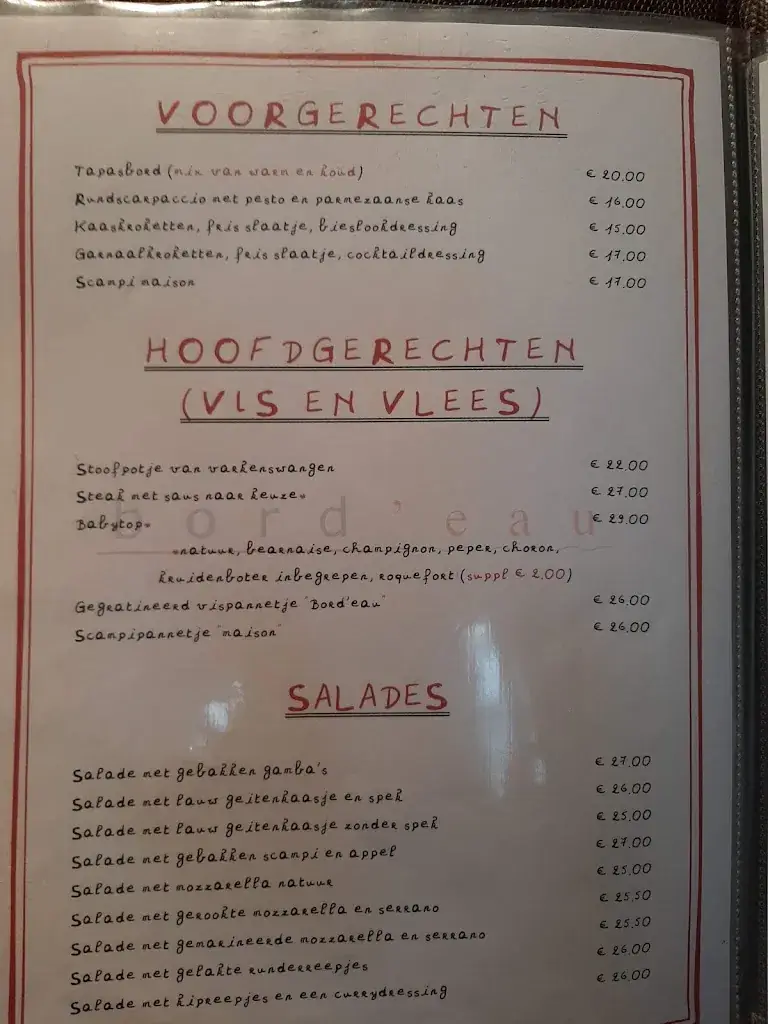 VOORGERECHTEN
Tapasbord (mix van warm en koud) € 20.00
Rundscarpaccio met pesto en parmezaanse kaas € 16.00
Kaaskroketten, fris slaatje, bieslookdressing € 15.00
Garnaalkroketten, fris slaatje, cocktaildressing € 17.00
Scampi maison € 17.00
HOOFDGERECHTEN
(VIS EN VLEES)
Stoofpotje van varkenswangen € 22.00
Steak met saus naar keuze* € 27.00
Babytop* € 29.00
bord'eau
*natuur, bearnaise, champignon, peper, choron,
kruidenboter inbegrepen, roquefort (suppl € 2,00)
Gegratineerd vispannetje "Bord'eau" € 26.00
Scampipannetje "maison" € 26.00
SALADES
Salade met gebakken gamba's € 27.00
Salade met lauw geitenkaasje en spek € 26.00
Salade met lauw geitenkaasje zonder spek € 25.00
Salade met gebakken scampi en appel € 27.00
Salade met mozzarella natuur € 25.00
Salade met gerookte mozzarella en serrano € 25,50
Salade met gemarineerde mozzarella en serrano € 25,50
Salade met gelakte runderreepjes € 26.00
Salade met kipreepjes en een currydressing € 26.00